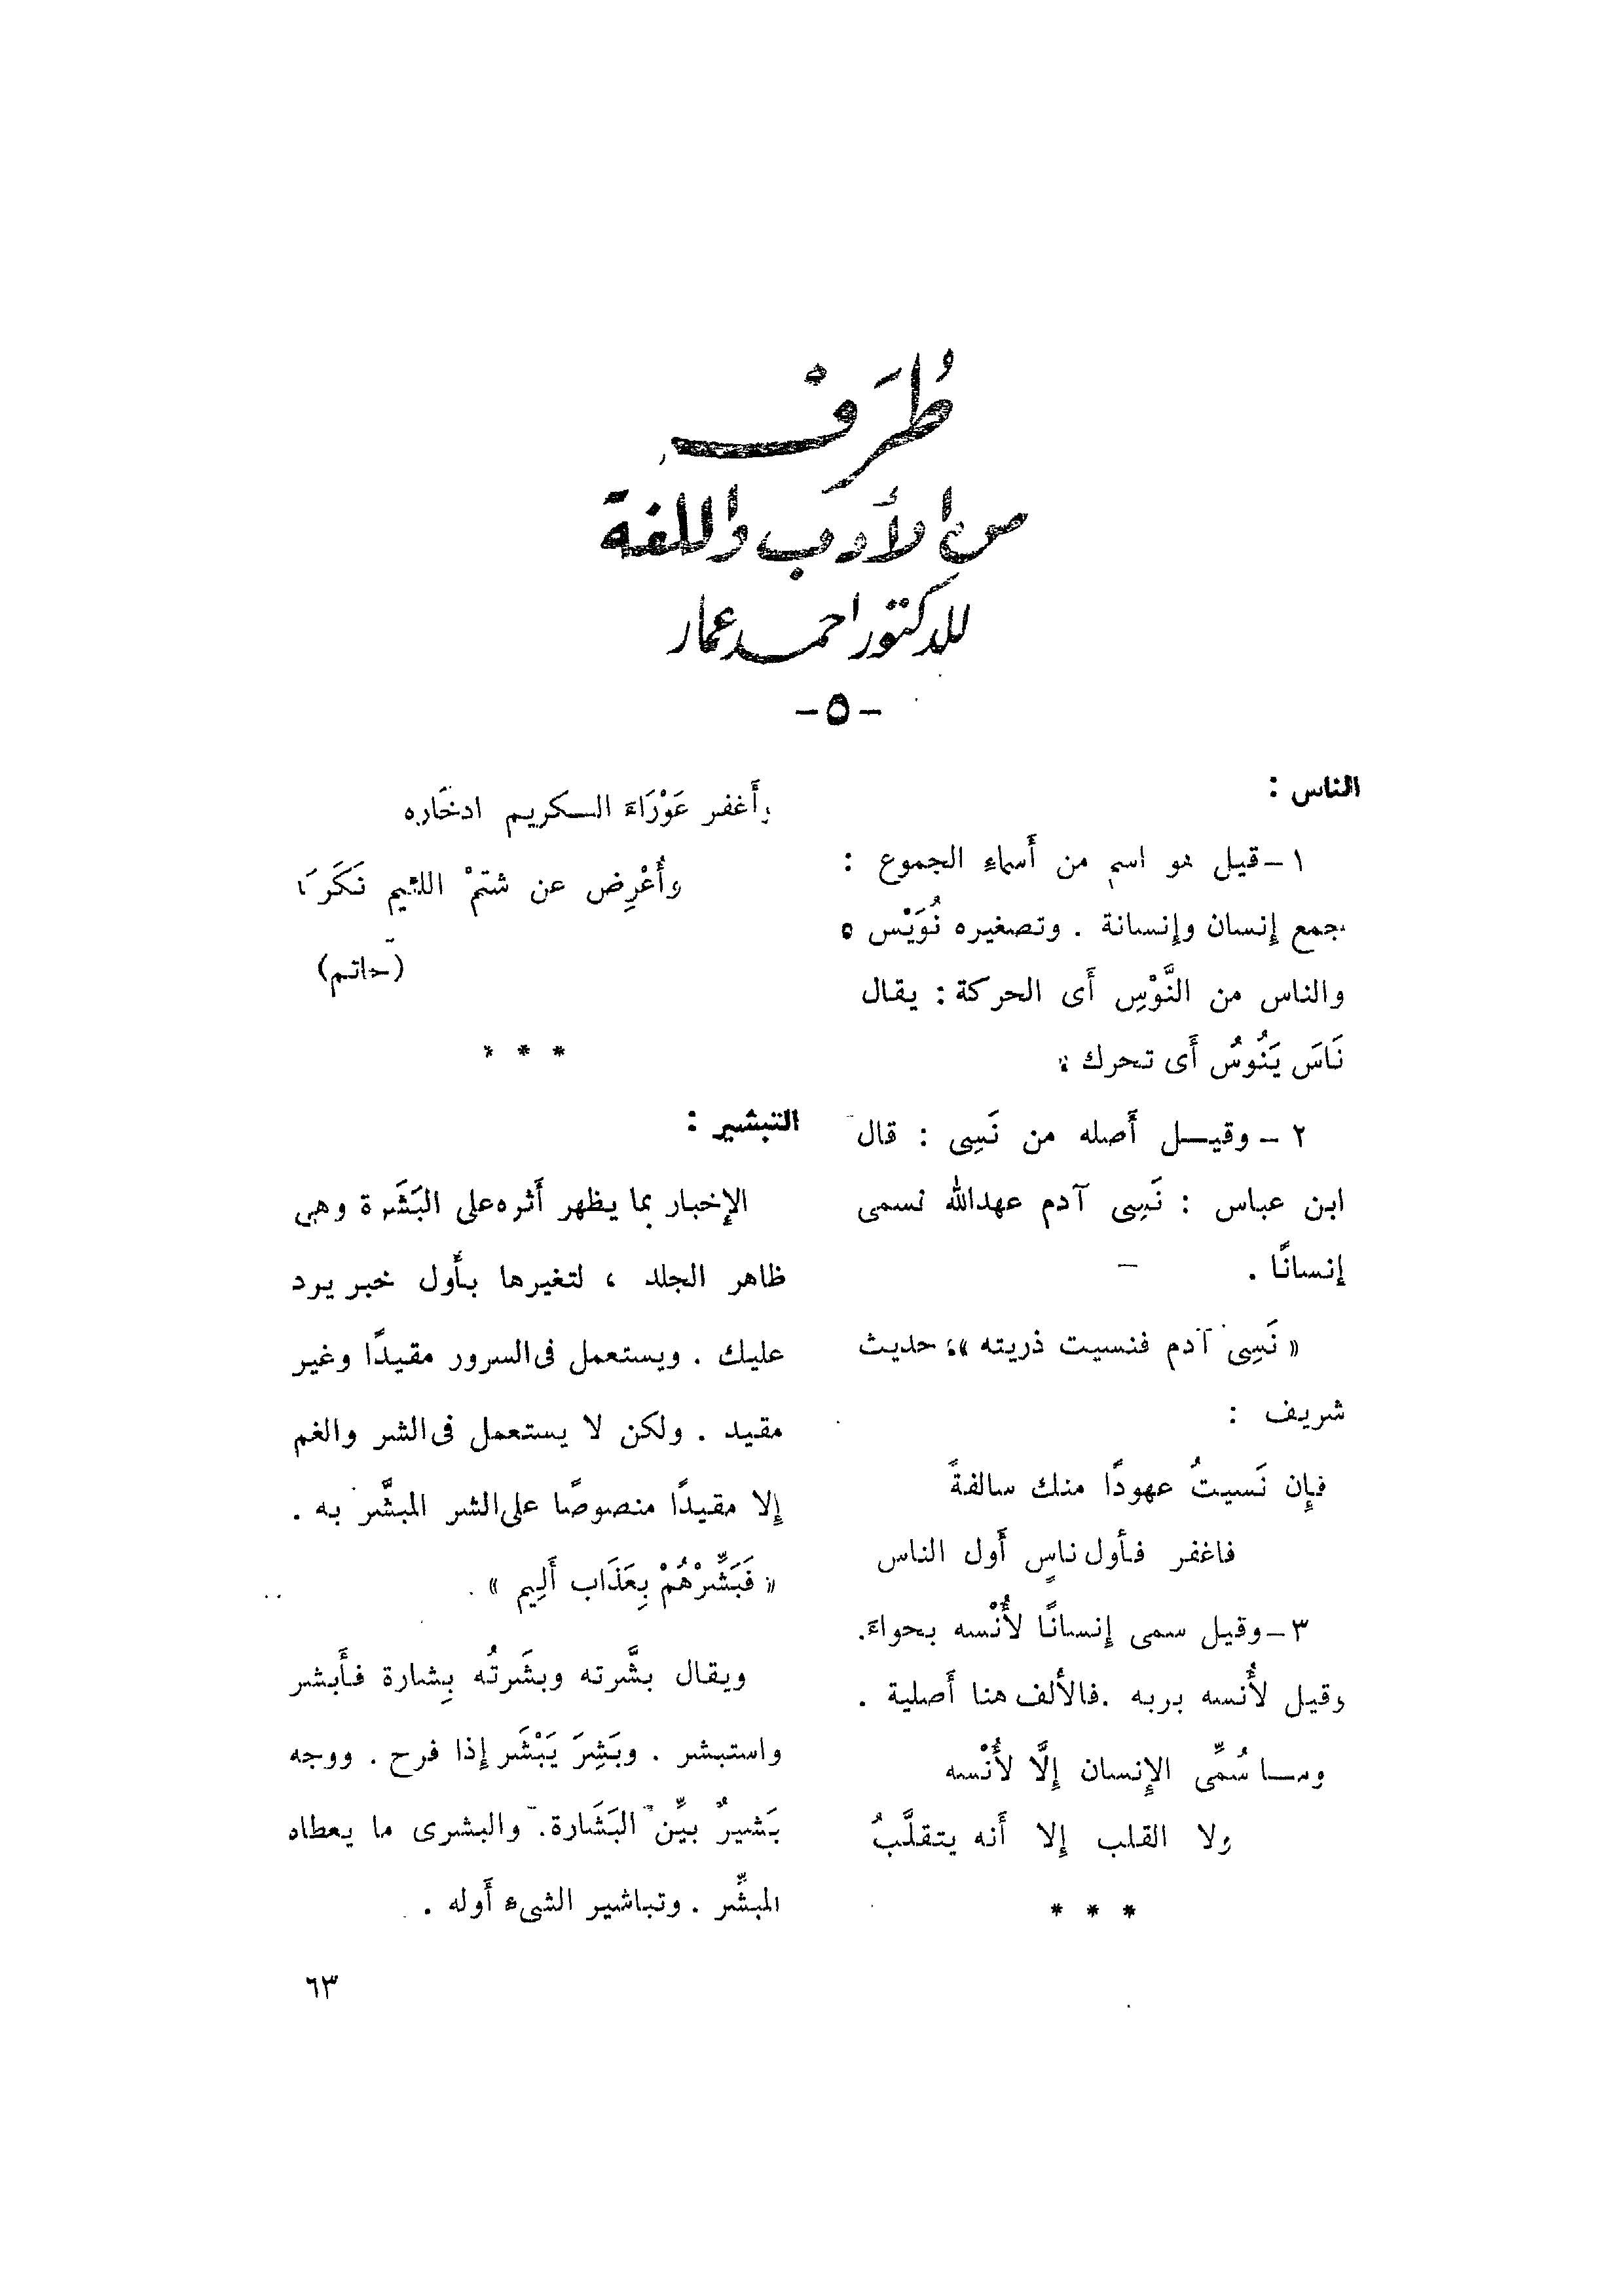 طُرَفْ
من الأدب واللغة
للدكتور احمد عمار
-٥-
الناس :
١- قيل هو اسم من أسماء الجموع :
جمع إنسان وإنسانة . وتصغيره نُوَيْس ه
والناس من النَّوْسِ أى الحركة : يقال
نَاسَ يَنُوسُ أى تحرك ؛
٢ - وقيـــل أصله من نَسِى : قال
ابن عباس : نَسِى آدم عهد الله نسمى
إنسانًا .
« نَسِى آدم فنسيت ذريته »؛ حديث
شريف :
فإن نَسيتُ عهودًا منك سالفةً
فاغفر فأول ناسٍ أول الناس
٣- وقيل سمى إنسانًا لأُنْسه بحواءَ.
وقيل لأُنسه بربه . فالألف هنا أصلية .
ومـــا سُمِّى الإنسان إلَّا لأُنْسه
ولا القلب إلا أنه يتقلَّبُ
* * *
وأَغفر عَوْرَاءَ الكريم ادخَاره
وأُعْرِض عن شتمْ اللئيم تَكَرما
(حاتم)
* * *
التبشير :
الإخبار بما يظهر أثره على البَشَرة وهى
ظاهر الجلد ، لتغيرها بأول خبر يرد
عليك . ويستعمل فى السرور مقيدًا وغير
مقيد . ولكن لا يستعمل فى الشر والغم
إلا مقيدًا منصوصًا على الشر المبشَّر به .
« فَبَشِّرْهُمْ بِعَذَاب أَلِيم » .
ويقال بشَّرته وبشَرتُه بِشارة فأَبشر
واستبشر . وبَشِرَ يَبْشَر إذا فرح . ووجه
بَشيرٌ بيِّن البَشَارة. والبشرى ما يعطاه
المبشِّر . وتباشير الشىء أوله .
٦٣